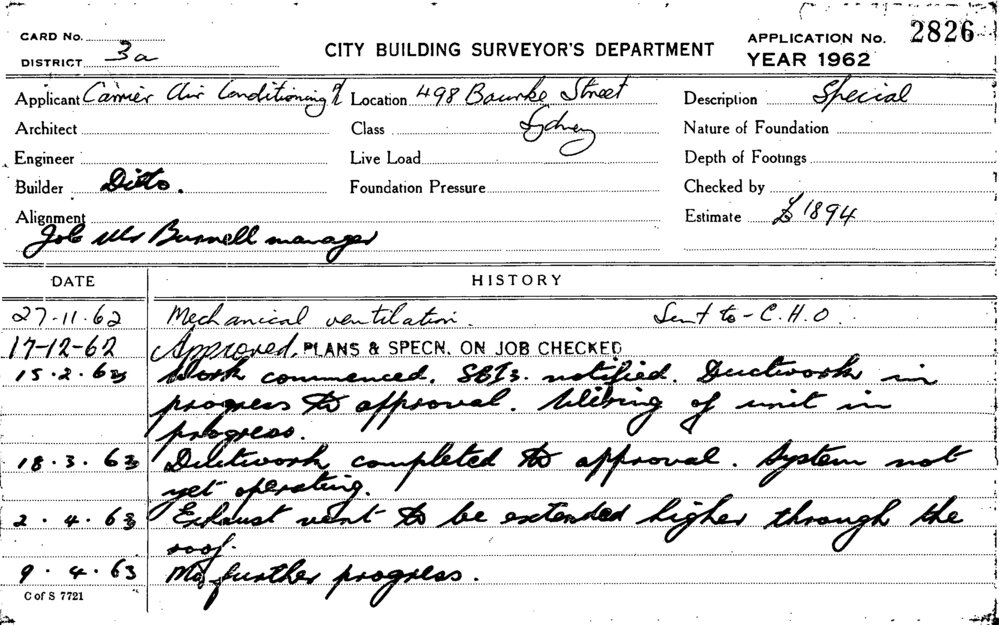 CARD No.
DISTRICT 3a
CITY BUILDING SURVEYOR'S DEPARTMENT
APPLICATION No. 2826
YEAR 1962
Applicant Carrier Air Conditioning Location 498 Bourke Street Description Special
Architect Class Sydney Nature of Foundation
Engineer Live Load Depth of Footings
Builder Ditto. Foundation Pressure Checked by
Alignment Estimate £1894
Job Mr Burnell manager
DATE HISTORY
27-11-62 Mechanical ventilation. Sent to - C.H.O.
17-12-62 Approved. PLANS & SPECN. ON JOB CHECKED
15.2.63 Work commenced. notified. Ductwork in
progress to approval. Wiring of unit in
progress.
18.3.63 Ductwork completed to approval. System not
yet operating.
2.4.63 Exhaust vent to be extended higher through the
roof.
9.4.63 No further progress.
C of S 7721